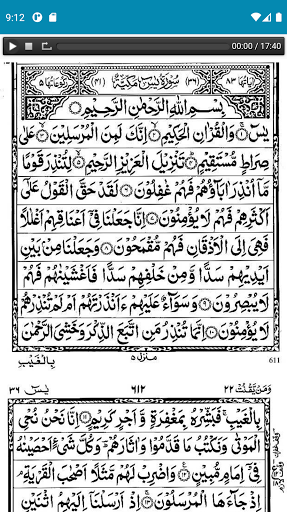 9:12
00:00 / 17:40
اٰيَاتُهَا ٨٣ (٣٦) سُوْرَةُ يٰسٓ مَكِّيَّةٌ (٤١) رُكُوْعَاتُهَا ٥
بِسْمِ اللّٰهِ الرَّحْمٰنِ الرَّحِيْمِ
يٰسٓ ۚ﴿١﴾ وَالْقُرْاٰنِ الْحَكِيْمِ ۙ﴿٢﴾ اِنَّكَ لَمِنَ الْمُرْسَلِيْنَ ۙ﴿٣﴾ عَلٰى
صِرَاطٍ مُّسْتَقِيْمٍ ؕ﴿٤﴾ تَنْزِيْلَ الْعَزِيْزِ الرَّحِيْمِ ۙ﴿٥﴾ لِتُنْذِرَ قَوْمًا
مَّاۤ اُنْذِرَ اٰبَآؤُهُمْ فَهُمْ غٰفِلُوْنَ ﴿٦﴾ لَقَدْ حَقَّ الْقَوْلُ عَلٰۤى
اَكْثَرِهِمْ فَهُمْ لَا يُؤْمِنُوْنَ ﴿٧﴾ اِنَّا جَعَلْنَا فِيْۤ اَعْنَاقِهِمْ اَغْلٰلًا
فَهِيَ اِلَى الْاَذْقَانِ فَهُمْ مُّقْمَحُوْنَ ﴿٨﴾ وَجَعَلْنَا مِنْۢ بَيْنِ
اَيْدِيْهِمْ سَدًّا وَّمِنْ خَلْفِهِمْ سَدًّا فَاَغْشَيْنٰهُمْ فَهُمْ
لَا يُبْصِرُوْنَ ﴿٩﴾ وَسَوَآءٌ عَلَيْهِمْ ءَاَنْذَرْتَهُمْ اَمْ لَمْ تُنْذِرْهُمْ
لَا يُؤْمِنُوْنَ ﴿١٠﴾ اِنَّمَا تُنْذِرُ مَنِ اتَّبَعَ الذِّكْرَ وَخَشِيَ الرَّحْمٰنَ
بِالْغَيْبِ منزل ٥ 611
وَمَنْ يَّقْنُتْ ٢٢ ٦١٢ يٰسٓ ٣٦
بِالْغَيْبِ ۚ فَبَشِّرْهُ بِمَغْفِرَةٍ وَّاَجْرٍ كَرِيْمٍ ﴿١١﴾ اِنَّا نَحْنُ نُحْيِ
الْمَوْتٰى وَنَكْتُبُ مَا قَدَّمُوْا وَاٰثَارَهُمْ ؕ وَكُلَّ شَيْءٍ اَحْصَيْنٰهُ
فِيْۤ اِمَامٍ مُّبِيْنٍ ﴿١٢﴾ وَاضْرِبْ لَهُمْ مَّثَلًا اَصْحٰبَ الْقَرْيَةِ ۘ
اِذْ جَآءَهَا الْمُرْسَلُوْنَ ﴿١٣﴾ اِذْ اَرْسَلْنَاۤ اِلَيْهِمُ اثْنَيْنِ